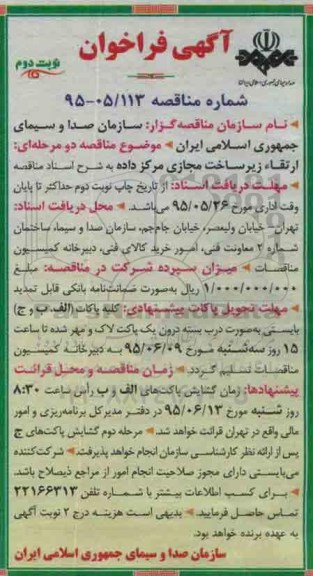 آگهی فراخوان
نوبت دوم
شماره مناقصه ۹۵-۰۵/۱۱۳
نام سازمان مناقصه‌گزار: سازمان صدا و سیمای
جمهوری اسلامی ایران موضوع مناقصه دو مرحله‌ای:
ارتقاء زیرساخت مجازی مرکز داده به شرح اسناد مناقصه
مهلت دریافت اسناد: از تاریخ چاپ نوبت دوم حداکثر تا پایان
وقت اداری مورخ ۹۵/۰۵/۲۶ می‌باشد. محل دریافت اسناد:
تهران خیابان ولیعصر، خیابان جام‌جم، سازمان صدا و سیما، ساختمان
شماره ۲ معاونت فنی، امور خرید کالای فنی، دبیرخانه کمیسیون
مناقصات میزان سپرده شرکت در مناقصه: مبلغ
۱/۰۰۰/۰۰۰/۰۰۰ ریال به‌صورت ضمانت‌نامه بانکی قابل تمدید
مهلت تحویل پاکات پیشنهادی: کلیه پاکات (الف، ب و ج)
بایستی به‌صورت درب بسته درون یک پاکت لاک و مهر شده تا ساعت
۱۵ روز سه‌شنبه مورخ ۹۵/۰۶/۰۹ به دبیرخانه کمیسیون
مناقصات تسلیم گردد. زمان مناقصه و محل قرائت
پیشنهادها: زمان گشایش پاکت‌های الف و ب رأس ساعت ۸:۳۰
روز شنبه مورخ ۹۵/۰۶/۱۳ در دفتر مدیرکل برنامه‌ریزی و امور
مالی واقع در تهران قرائت خواهد شد. مرحله دوم گشایش پاکت‌های ج
پس از ارائه نظر کارشناسی سازمان انجام خواهد پذیرفت. شرکت‌کننده
می‌بایستی دارای مجوز صلاحیت انجام امور از مراجع ذیصلاح باشد.
برای کسب اطلاعات بیشتر با شماره تلفن ۲۲۱۶۶۳۱۳
تماس حاصل فرمایید. بدیهی است هزینه درج ۲ نوبت آگهی
به عهده برنده خواهد بود.
سازمان صدا و سیمای جمهوری اسلامی ایران